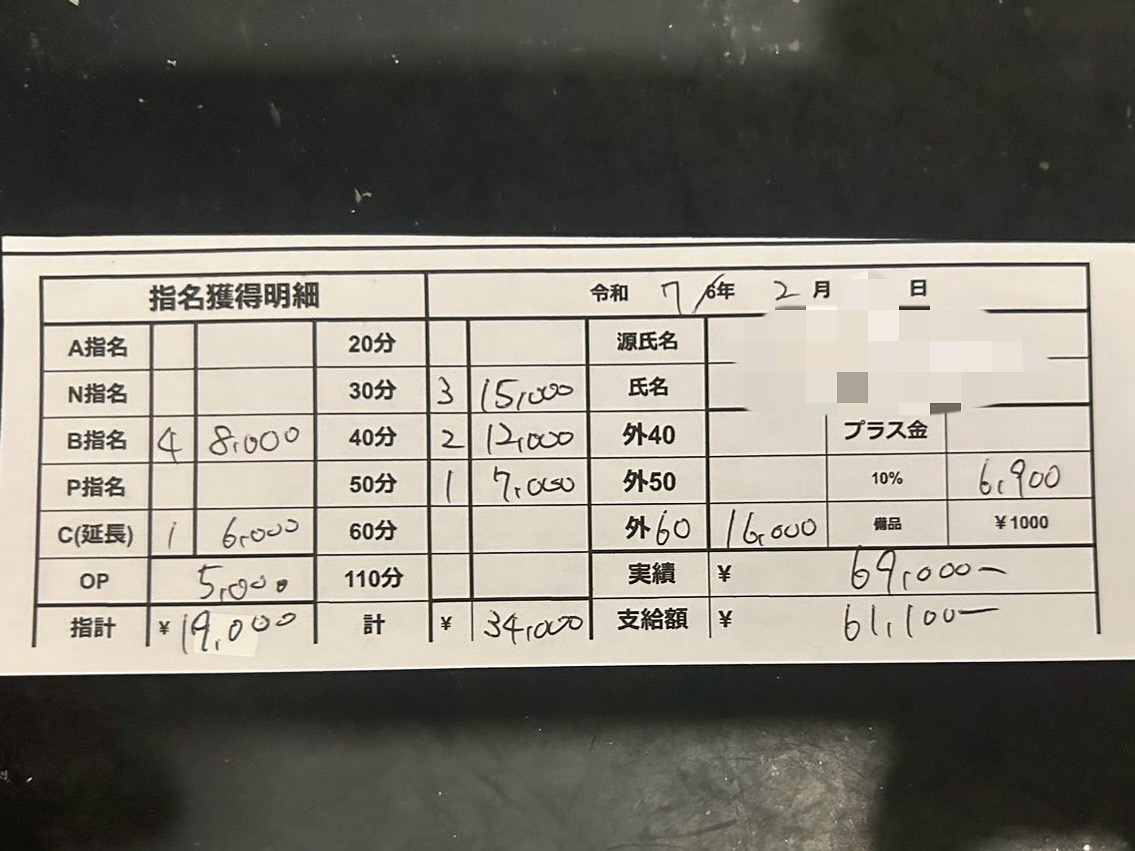 指名獲得明細 令和 7 6年 2月 日
A指名 20分 源氏名
N指名 30分 3 15,000 氏名
B指名 4 8,000 40分 2 12,000 外40 プラス金
P指名 50分 1 7,000 外50 10% 6,900
C(延長) 1 6,000 60分 外60 16,000 備品 ¥1000
OP 5,000 110分 実績 ¥ 69,000-
指計 ¥19,000 計 ¥ 34,000 支給額 ¥ 61,100-